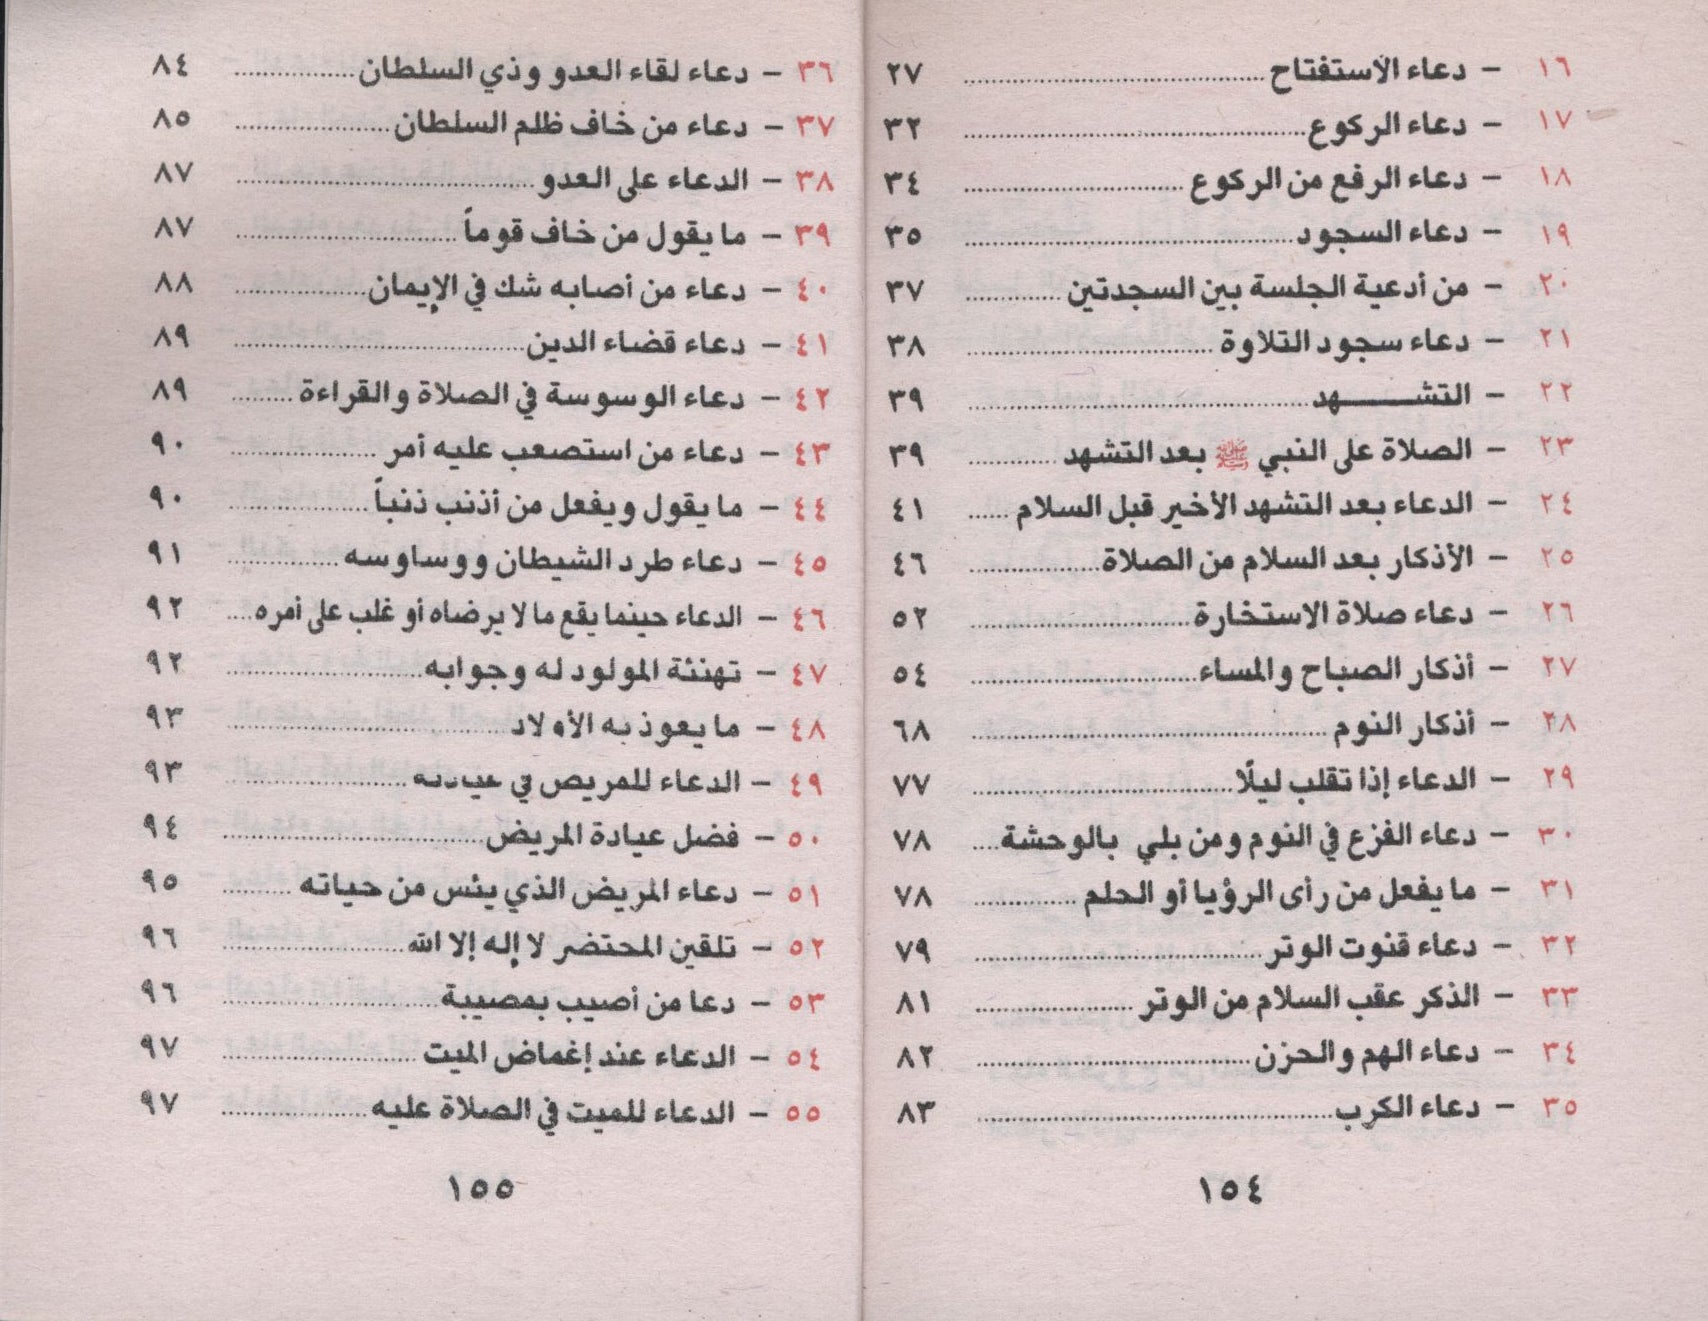 ١٦ - دعاء الاستفتاح ........ ٢٧
١٧ - دعاء الركوع ........ ٣٢
١٨ - دعاء الرفع من الركوع ........ ٣٤
١٩ - دعاء السجود ........ ٣٥
٢٠ - من أدعية الجلسة بين السجدتين ........ ٣٧
٢١ - دعاء سجود التلاوة ........ ٣٨
٢٢ - التشـــــهد ........ ٣٩
٢٣ - الصلاة على النبي ﷺ بعد التشهد ........ ٣٩
٢٤ - الدعاء بعد التشهد الأخير قبل السلام ...... ٤١
٢٥ - الأذكار بعد السلام من الصلاة ........ ٤٦
٢٦ - دعاء صلاة الاستخارة ........ ٥٢
٢٧ - أذكار الصباح والمساء ........ ٥٤
٢٨ - أذكار النوم ........ ٦٨
٢٩ - الدعاء إذا تقلب ليلًا ........ ٧٧
٣٠ - دعاء الفزع في النوم ومن بلي بالوحشة .... ٧٨
٣١ - ما يفعل من رأى الرؤيا أو الحلم ........ ٧٨
٣٢ - دعاء قنوت الوتر ........ ٧٩
٣٣ - الذكر عقب السلام من الوتر ........ ٨١
٣٤ - دعاء الهم والحزن ........ ٨٢
٣٥ - دعاء الكرب ........ ٨٣
١٥٤
٣٦ - دعاء لقاء العدو وذي السلطان ........ ٨٤
٣٧ - دعاء من خاف ظلم السلطان ........ ٨٥
٣٨ - الدعاء على العدو ........ ٨٧
٣٩ - ما يقول من خاف قوماً ........ ٨٧
٤٠ - دعاء من أصابه شك في الإيمان ........ ٨٨
٤١ - دعاء قضاء الدين ........ ٨٩
٤٢ - دعاء الوسوسة في الصلاة والقراءة ........ ٨٩
٤٣ - دعاء من استصعب عليه أمر ........ ٩٠
٤٤ - ما يقول ويفعل من أذنب ذنباً ........ ٩٠
٤٥ - دعاء طرد الشيطان ووساوسه ........ ٩١
٤٦ - الدعاء حينما يقع ما لا يرضاه أو غلب على أمره .... ٩٢
٤٧ - تهنئة المولود له وجوابه ........ ٩٢
٤٨ - ما يعوذ به الأولاد ........ ٩٣
٤٩ - الدعاء للمريض في عيادته ........ ٩٣
٥٠ - فضل عيادة المريض ........ ٩٤
٥١ - دعاء المريض الذي يئس من حياته ........ ٩٥
٥٢ - تلقين المحتضر لا إله إلا الله ........ ٩٦
٥٣ - دعا من أصيب بمصيبة ........ ٩٦
٥٤ - الدعاء عند إغماض الميت ........ ٩٧
٥٥ - الدعاء للميت في الصلاة عليه ........ ٩٧
١٥٥